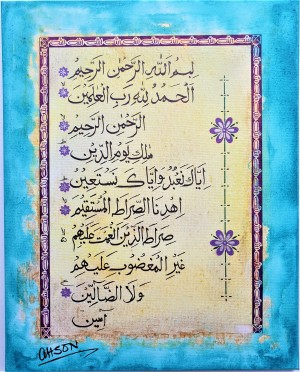 بسم الله الرحمن الرحيم
الحمد لله رب العلمين
الرحمن الرحيم
ملك يوم الدين
اياك نعبد واياك نستعين
اهدنا الصراط المستقيم
صراط الذين انعمت عليهم
غير المغضوب عليهم
ولا الضالين
آمين
AHSON